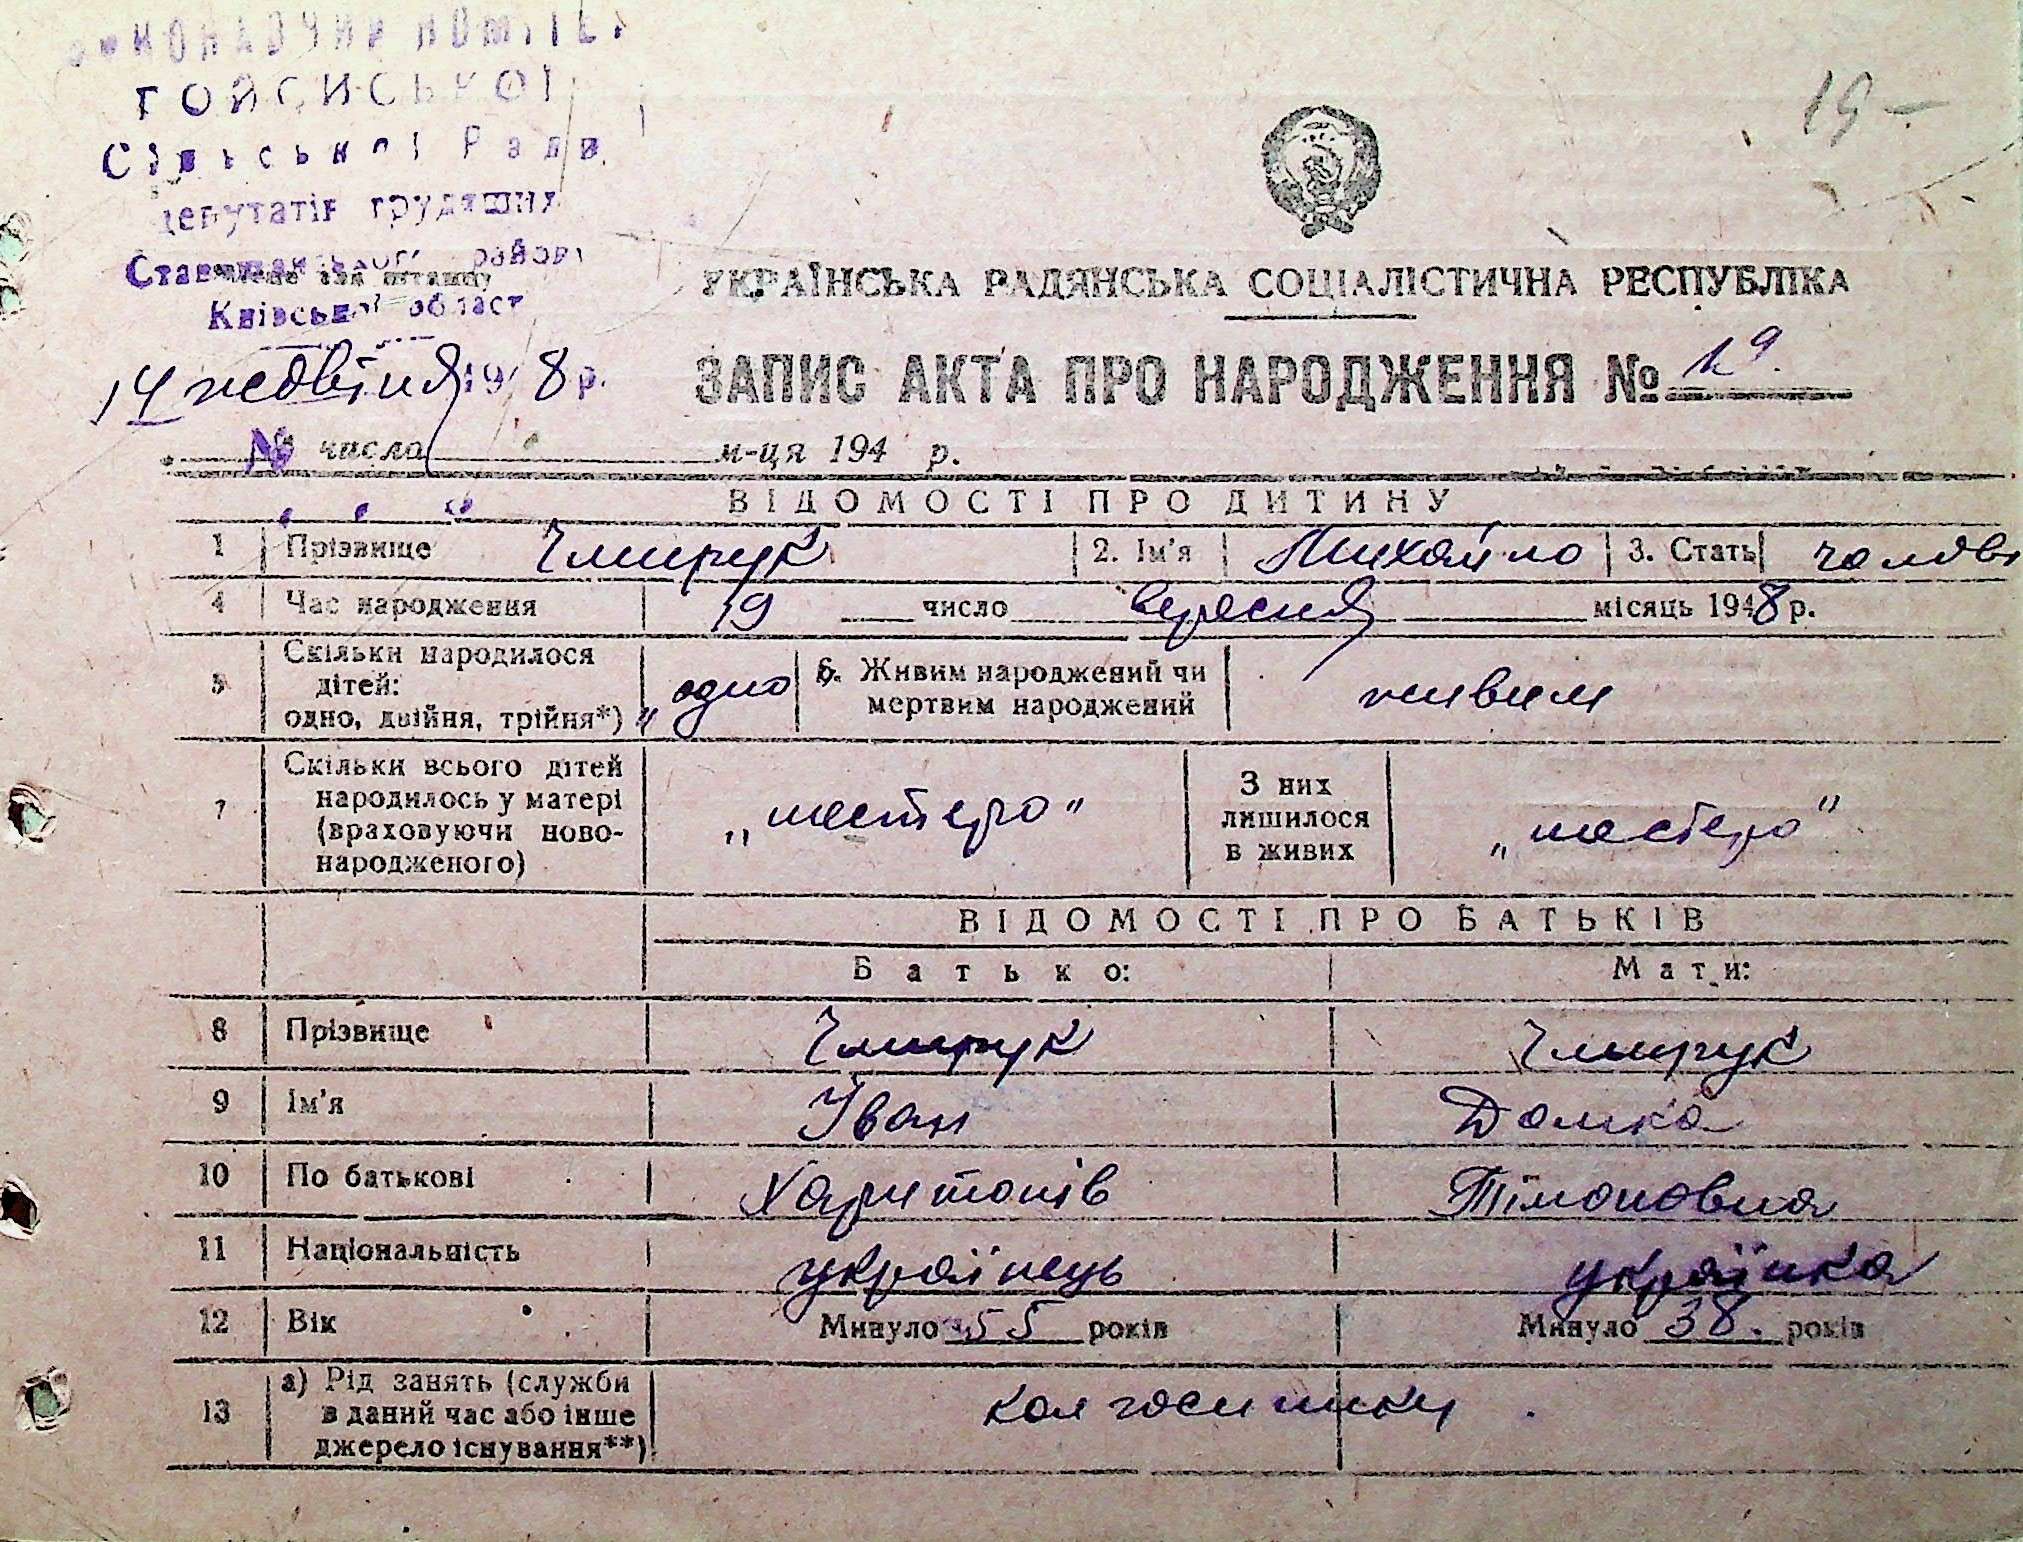 19 –
ГОЙСИСЬКОЇ
Сільської Ради
депутатів трудящих
району
Київської област
УКРАЇНСЬКА РАДЯНСЬКА СОЦІАЛІСТИЧНА РЕСПУБЛІКА
14 жовтня 19 8 р.
ЗАПИС АКТА ПРО НАРОДЖЕННЯ № 19.
№ число м-ця 194 р.
ВІДОМОСТІ ПРО ДИТИНУ
1 Прізвище Чмирук 2. Ім'я Михайло 3. Стать чолові
4 Час народження 19 число вересня місяць 1948 р.
5 Скільки народилося дітей: одно, двійня, трійня*) „одно 6. Живим народжений чи мертвим народжений живим
7 Скільки всього дітей народилось у матері (враховуючи ново-народженого) „шестеро" З них лишилося в живих „шестеро"
ВІДОМОСТІ ПРО БАТЬКІВ
Батько: Мати:
8 Прізвище Чмирук Чмирук
9 Ім'я Іван Домка
10 По батькові Харитонів Тімоновна
11 Національність українець українка
12 Вік Минуло 55 років Минуло 38. років
13 а) Рід занять (служби в даний час або інше джерело існування**) колгоспники